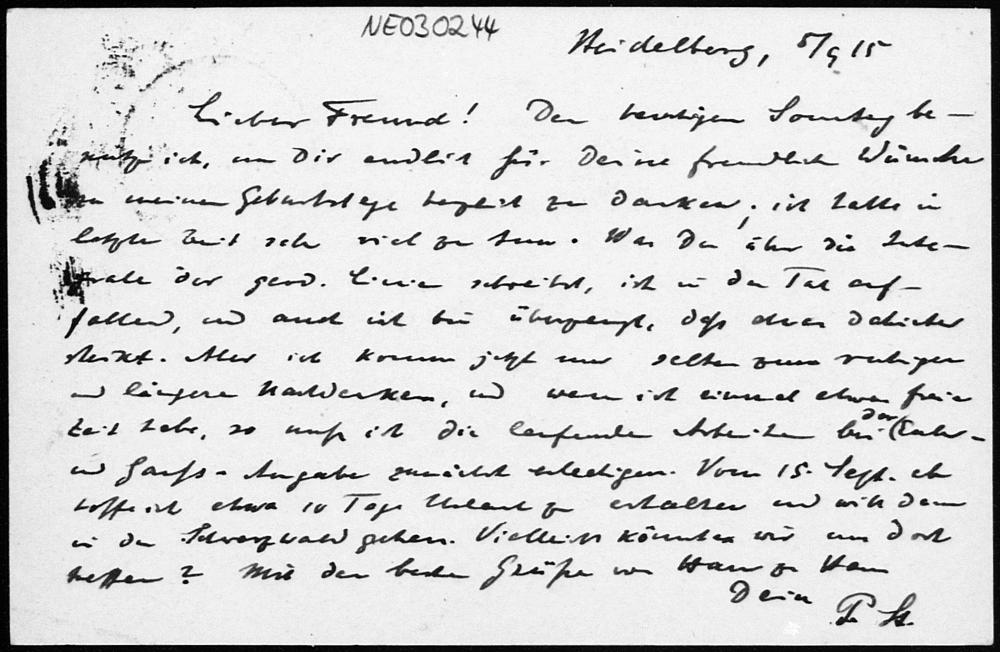 NE030244
Heidelberg, 5/9 15
Lieber Freund! Den heutigen Sonntag be-
nutze ich, um Dir endlich für Deine freundlichen Wünsche
zu meinem Geburtstage herzlich zu danken; ich hatte in
letzter Zeit sehr viel zu tun. Was Du über die Inte-
grale der gerad. Linien schreibst, ist in der Tat auf-
fallend, und auch ich bin überzeugt, daß etwas dahinter
steckt. Aber ich komme jetzt nur selten zum ruhigen
und längeren Nachdenken, und wenn ich einmal etwas freie
Zeit habe, so muß ich die laufenden Arbeiten bei der Euler-
und Gauß-Ausgabe zunächst erledigen. Vom 15. Sept. ab
hoffe ich etwa 10 Tage Urlaub zu erhalten und will dann
in den Schwarzwald gehen. Vielleicht könnten wir uns dort
treffen? Mit den besten Grüßen von Haus zu Haus
Dein
P. St.